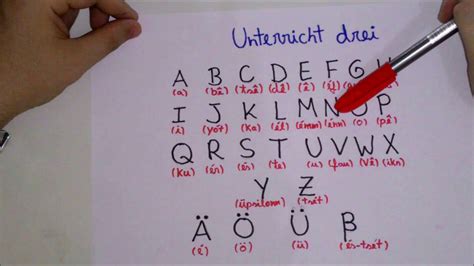 Unterricht drei
A B C D E F G
(a) (bê) (tsê) (dê) (ê)
I J K L M N O P
(i) (yot) (ka) (él) (émm) (énn) (o) (pê)
Q R S T U V W X
(ku) (ér) (és) (te) (u) (fau) (vê) (iks)
Y Z
(üpsilonn) (tsét)
Ä Ö Ü β
(é) (ö) (ü) (és-tsét)